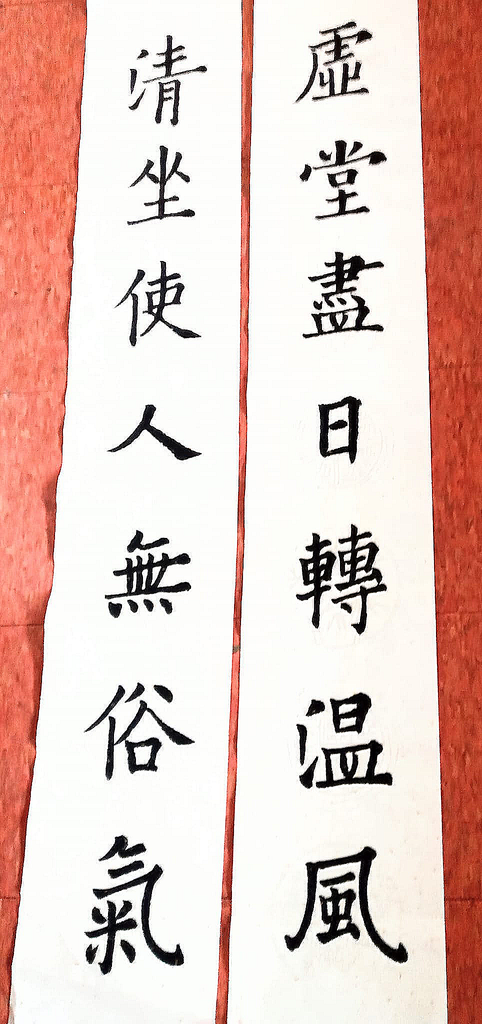 虛堂盡日轉温風
清坐使人無俗氣